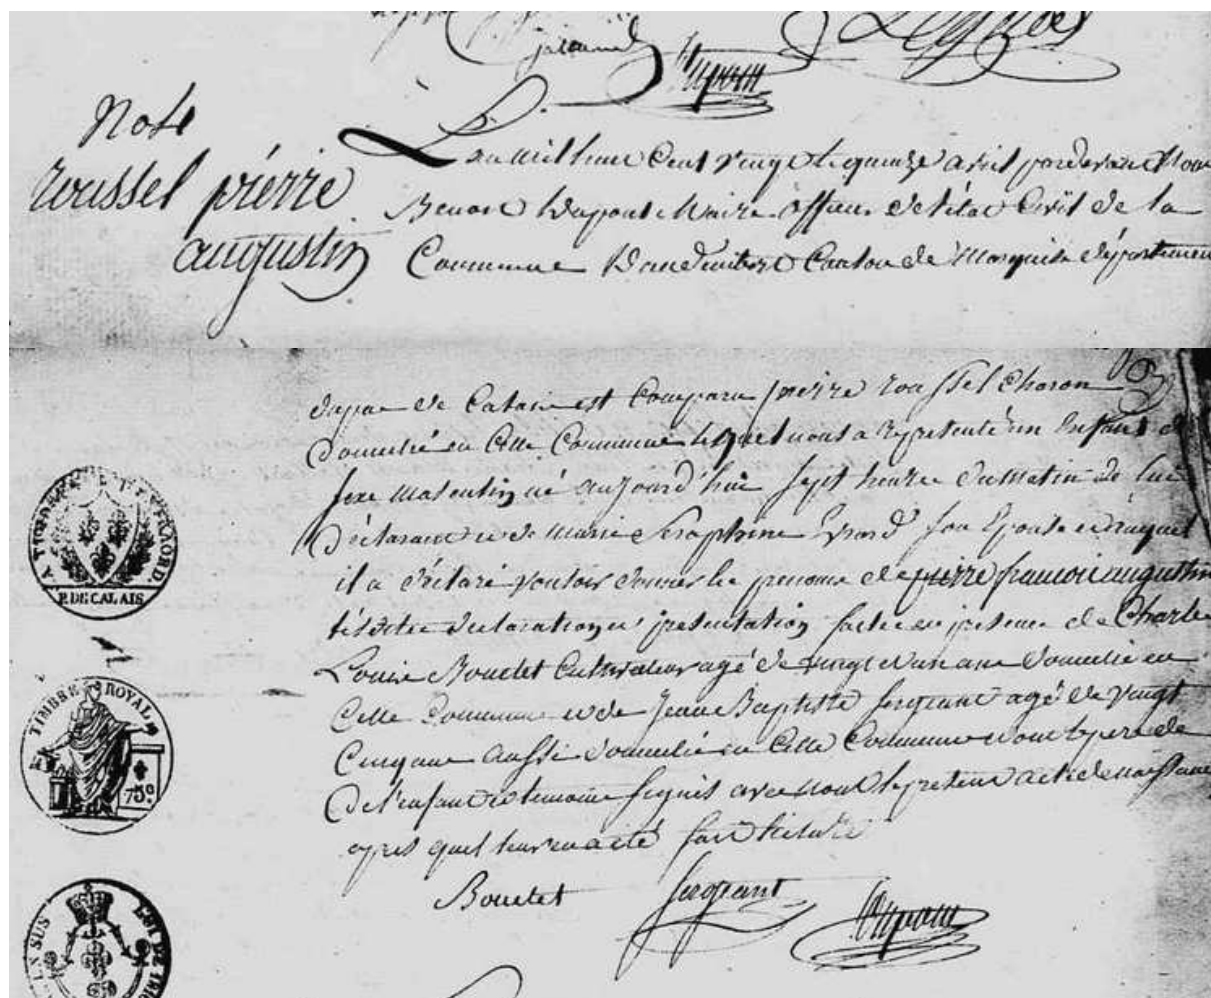 Dupont
Note
roussel pierre
augustin
L'an mil huit Cent vingt le quinze avril pardevant Nous
Benoit Dupont Maire officier de l'état Civil de la
Commune Canton de Marquise département
du pas de Calais est Comparu pierre roussel Charon
Domicilié en Cette Commune lequel nous a représenté un Enfant de
sexe Masculin né aujourd'hui sept heure du Matin de lui
Déclarant et de Marie Séraphine Evrard son Epouse et auquel
il a déclaré vouloir donner les prenoms de pierre francois augustin
lesdites declaration et présentation faites en présence de Charle
Louis Bouclet Cultivateur agé de vingt ans domicilié en
Cette Commune et de Jean Baptiste Sergeant agé de vingt
Cinq ans aussi domicilié en Cette Commune le pere de
De l'enfant et temoins signés avec nous le présent acte de naissance
apres quil leur en a été fait lecture
Bouclet Sergeant Dupont
A TIMBRER EXTRAORD.
P. DE CALAIS
TIMBRE ROYAL
75c.
EN SUS
LOI DE